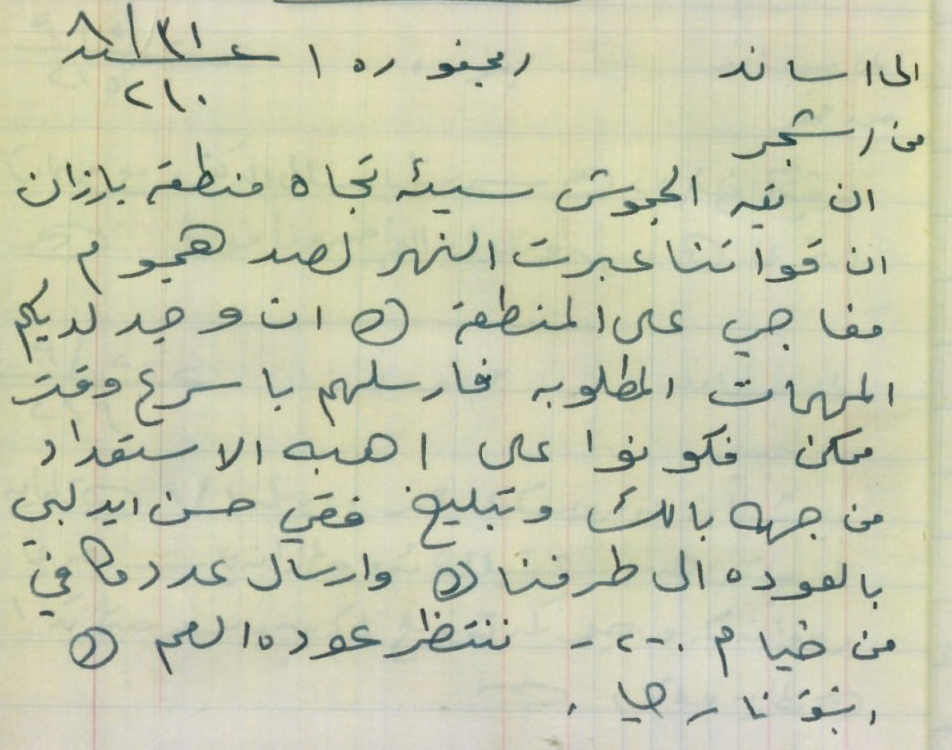 الى / ساند رمجفوره / ٨/٣١
٢١٠
من / شجر
ان نية الجيوش سيئه تجاه منطقة بارزان
ان قواتنا عبرت النهر لصد هجوم
مفاجي على المنطقة (ه) ان وجد لديكم
المهمات المطلوبه فارسلهم باسرع وقت
ممكن فكونوا على اهبه الاستعداد
من جهه بالك وتبليغ فقي حسن ايدلبي
بالعوده الى طرفنا (ه) وارسال عدد كافي
من خيام .-٢- ننتظر عوده العم (ه)